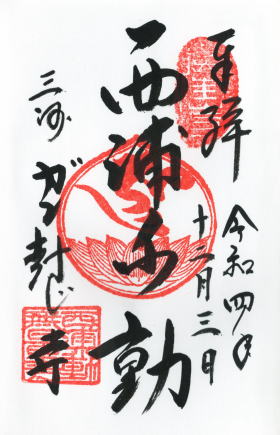 奉拝
令和四年
十二月三日
西浦不動
三河
がん封じ
寺